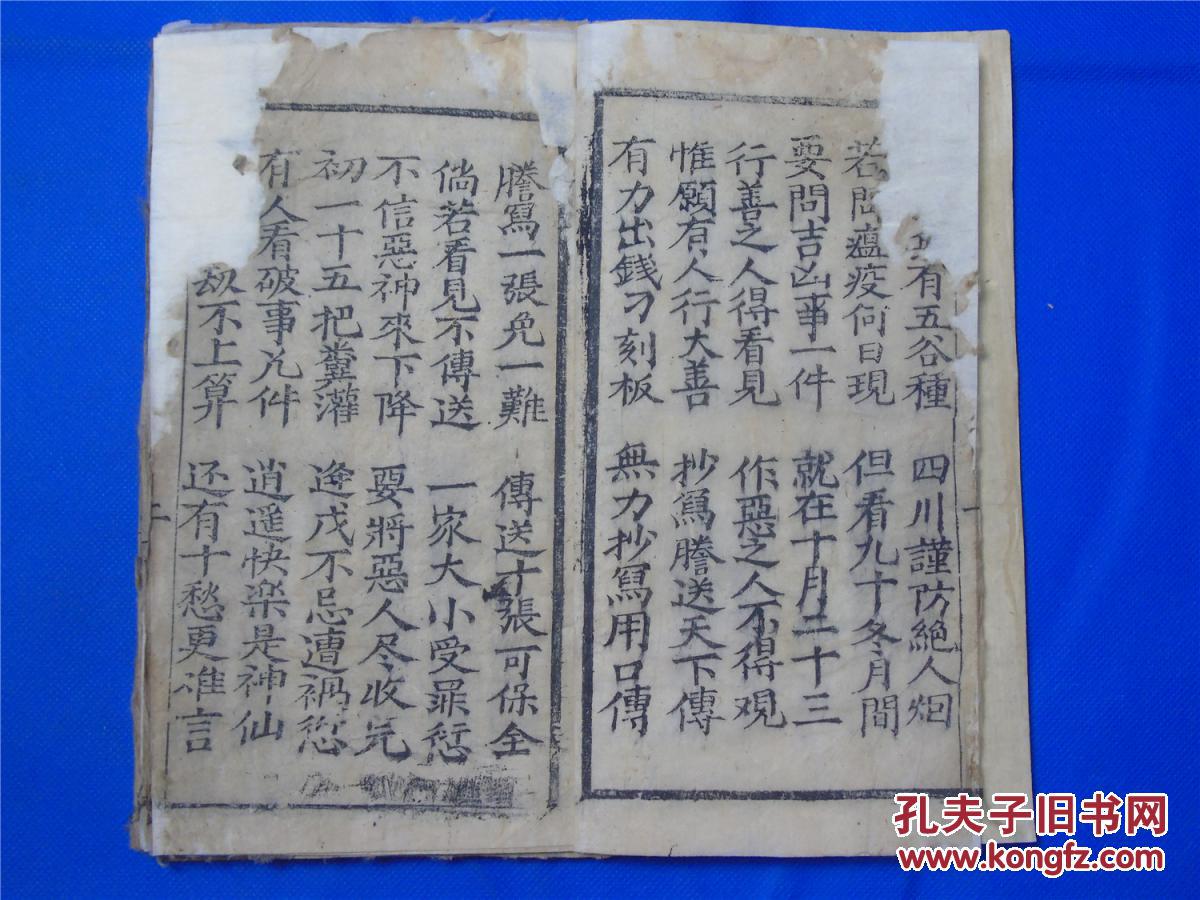 有五谷種 四川謹防絕人烟
若問瘟疫何日現 但看九十冬月間
要問吉凶事一件 就在十月二十三
行善之人得看見 作惡之人不得观
惟願有人行大善 抄寫謄送天下傳
有力出錢刁刻板 無力抄寫用口傳
謄寫一張免一難 傳送十張可保全
倘若看見不傳送 一家大小受罪愆
不信惡神來下降 要將惡人尽收完
初一十五把糞灌 逢戊不忌遭禍愆
有人看破事几件 逍遥快楽是神仙
劫不上算 还有十愁更难言
孔夫子旧书网
www.kongfz.com